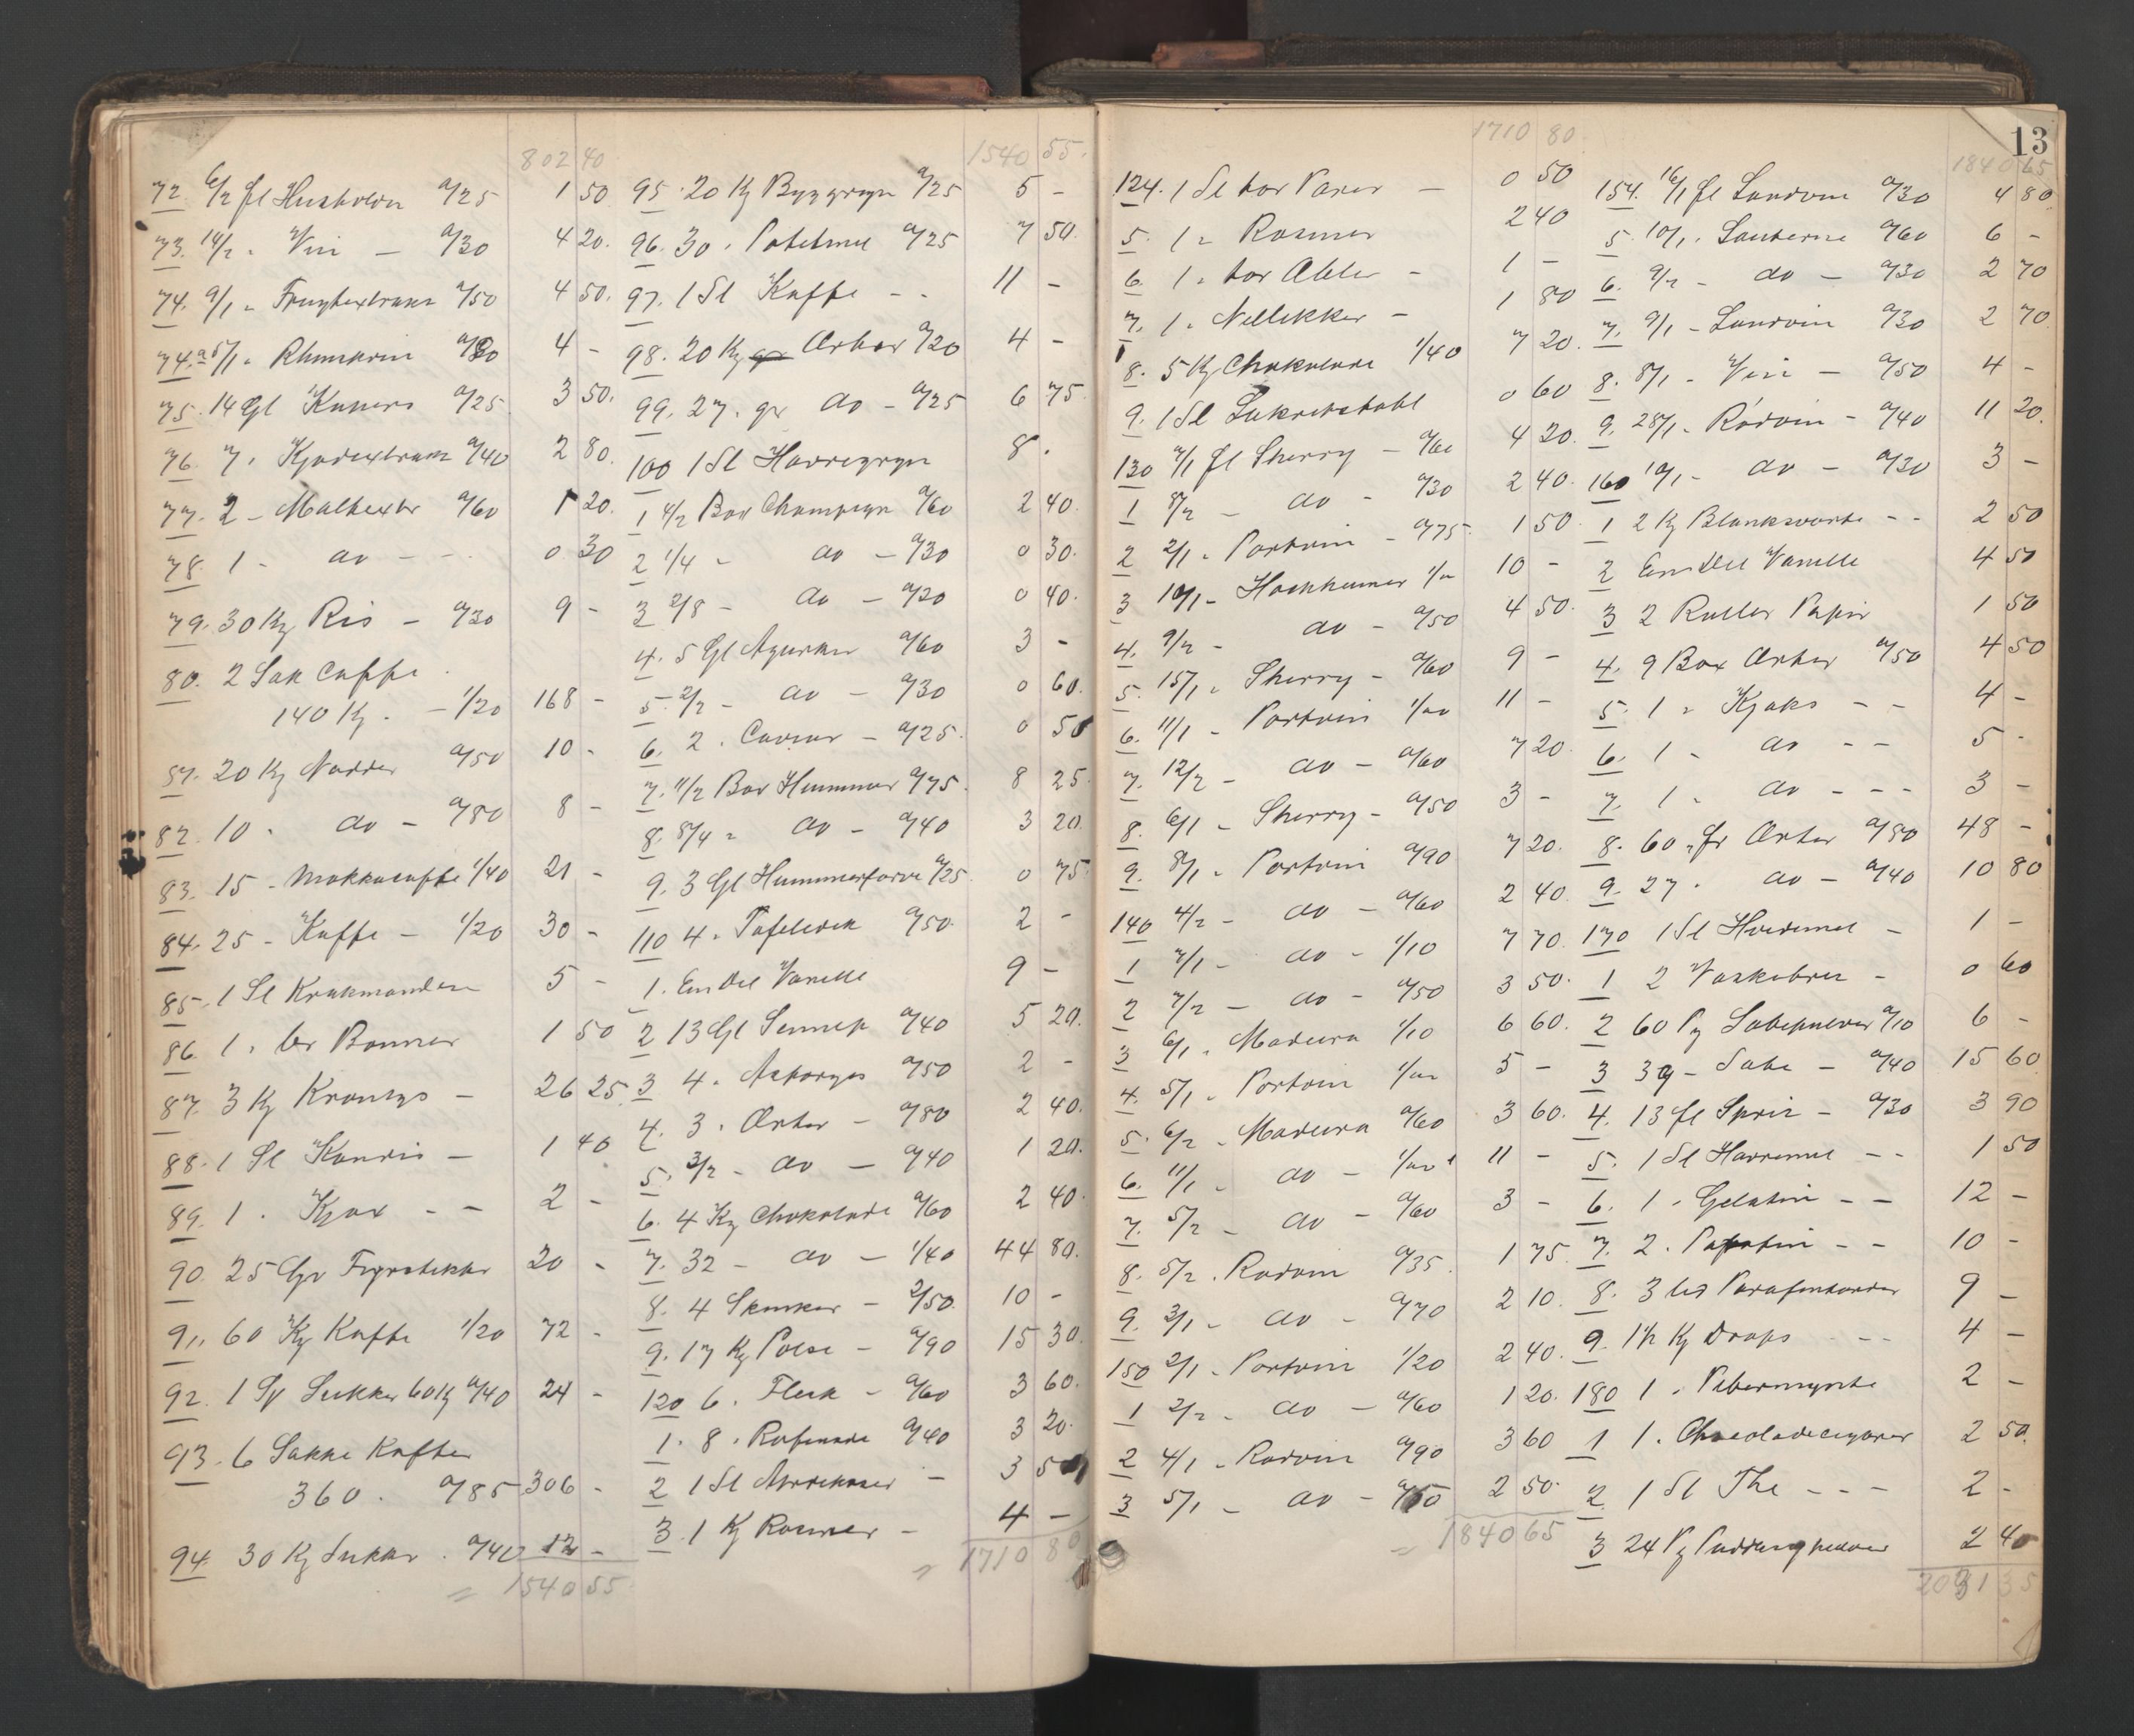 802 40
72. 6/2 fl Husholdn a/25 1 50
73. 14/2 " Vin — a/30 4 20.
74. 9/1 " Frugtextrakt a/50 4 50.
74.a 5/1 " Rhinskvin a/80 4 -
75. 14 Gl Kapers a/25 3 50.
76. 7 " Kjødextrakt a/40 2 80.
77. 2 - Maltextr a/60 1 20.
78. 1 - do - - 0 30
79. 30 Kg Ris - a/30 9 -
80. 2 Sæk Caffe
140 Kg. - 1/20 168 -
81. 20 Kg Nødder a/50 10 -
82. 10 " do - a/80 8 -
83. 15 - Mokkacaffe 1/40 21 -
84. 25 - Kaffe - 1/20 30 -
85. 1 Sl Krakmandler 5 -
86. 1 " br Bønner 1 50
87. 3 Kg Kronlys - 26 25
88. 1 Sl Kandis - 1 40
89. 1 " Kjax - - 2 -
90. 25 Gr Fyrstikker 20 -
91. 60 Kg Kaffe 1/20 72 -
92. 1 Sk Sukker 60 Kg a/40 24 -
93. 6 Sække Kaffe
360. a/85 306 -
94. 30 Kg Sukker. a/40 12 -
= 1540 55
1540 55.
95. 20 Kg Byggryn a/25 5 -
96. 30 " Potetmel a/25 7 50.
97. 1 Sl Kaffe - - 11 -
98. 20 Kg gr Ærter a/20 4 -
99. 27 " gr do - a/25 6 75.
100 1 Sl Havregryn 8 .
1 4/2 Box Champign a/60 2 40.
2 1/4 - do - a/30 0 30.
3 2/8 - do - a/20 0 40.
4. 5 Gl Agurker a/60 3 -
5. 2/2 - do - a/30 0 60.
6. 2 " Caviar - a/25 0 50
7. 11/2 Box Hummer a/75 8 25
8. 8/4 " do - a/40 3 20
9. 3 Gl Hummerfarve a/25 0 75
110 4 " Tafeledik a/50 2 -
1. En Del Vanille 9 -
2 13 Gl Sennep a/40 5 20.
3 4 " Asparges a/50 2 -
4. 3 " Ærter - a/80 2 40.
5. 3/2 - do - a/40 1 20.
6. 4 Kg Chokolade a/60 2 40.
7. 32 - do - 1/40 44 80.
8. 4 Skinker - 2/50 10 -
9. 17 Kg Pølse - a/90 15 30.
120 6 " Flesk - a/60 3 60.
1. 8 " Rafinade a/40 3 20.
2 1 Sl - 3 50
3. 1 Kg Rosiner - 4 -
= 1710 80
1710 80
124. 1 Sl tør Pærer - 0 50
5. 1 " Rosiner 2 40
6. 1 " tør Æbler - 1 -
7. 1 " Nellikker - 1 80
8. 5 Kg Chokolade 1/40 7 20.
9. 1 Sl Lakrisstabl 0 60
130 7/1 fl Sherry - a/60 4 20.
1 8/2 - do - a/30 2 40.
2 2/1 " Portvin - a/75 1 50
3 10/1 - Hockheimer 1/oo 10 -
4. 9/2 - do - a/50 4 50.
5. 15/1 " Sherry - a/60 9 -
6. 11/1 - Portvin 1/oo 11 -
7. 12/2 - do - a/60 7 20.
8. 6/1 - Sherry - a/50 3 -
9. 8/1 - Portvin a/90 7 20.
140 4/2 - do - a/60 2 40.
1 7/1 - do - 1/10 7 70.
2 7/2 - do - a/50 3 50.
3 6/1 " Madeira 1/10 6 60.
4. 5/1 " Portvin 1/oo 5 -
5. 6/2 - Madeira a/60 3 60.
6. 11/1 - do - 1/oo 11 -
7. 5/2 - do - a/60 3 -
8. 5/2 " Rødvin a/35 1 75
9. 3/1 - do - a/70 2 10.
150 2/1 - Portvin 1/20 2 40.
1 2/2 - do - a/60 1 20.
2 4/1 - Rødvin a/90 3 60
3 5/1 - do - a/50 2 50
= 1840 65
13
1840 65
154. 16/1 fl Landvin a/30 4 80
5. 10/1 " Sauterne a/60 6 -
6. 9/2 - do - a/30 2 70
7. 9/1 - Landvin a/30 2 70
8. 8/1 - Vin - a/50 4 -
9. 28/1 - Rødvin - a/40 11 20.
160 10/1 - do - a/30 3 -
1 2 Kg Blanksværte - - 2 50
2 En Del Vanille 4 50
3 2 Ruller Papir 1 50
4. 9 Box Ærter a/50 4 50
5. 1 " Kjaks - - 4 -
6. 1 - do - - 5 -
7. 1 " do - - - 3 -
8. 60 " fr Ærter a/80 48 -
9. 27 " do - a/40 10 80
170 1 Sl Hvedemel - 1 -
1 2 Vaskebrer - 0 60
2 60 Pg Sæbepulver a/10 6 -
3 39 - Sæbe - a/40 15 60
4. 13 fl Sprit - a/30 3 90
5. 1 Sl Havremel - - 1 50
6. 1 " Gelatin - - 12 -
7. 2 " - - 10 -
8. 3 9 -
9. 1 1/2 Kg Drops - - 4 -
180 1 " Pebermynte 2 -
1 1 " Chocoladecigarer 2 50.
2 1 Sl The - - - 2 -
3 24 Pg Puddingpulver 2 40
2031 35